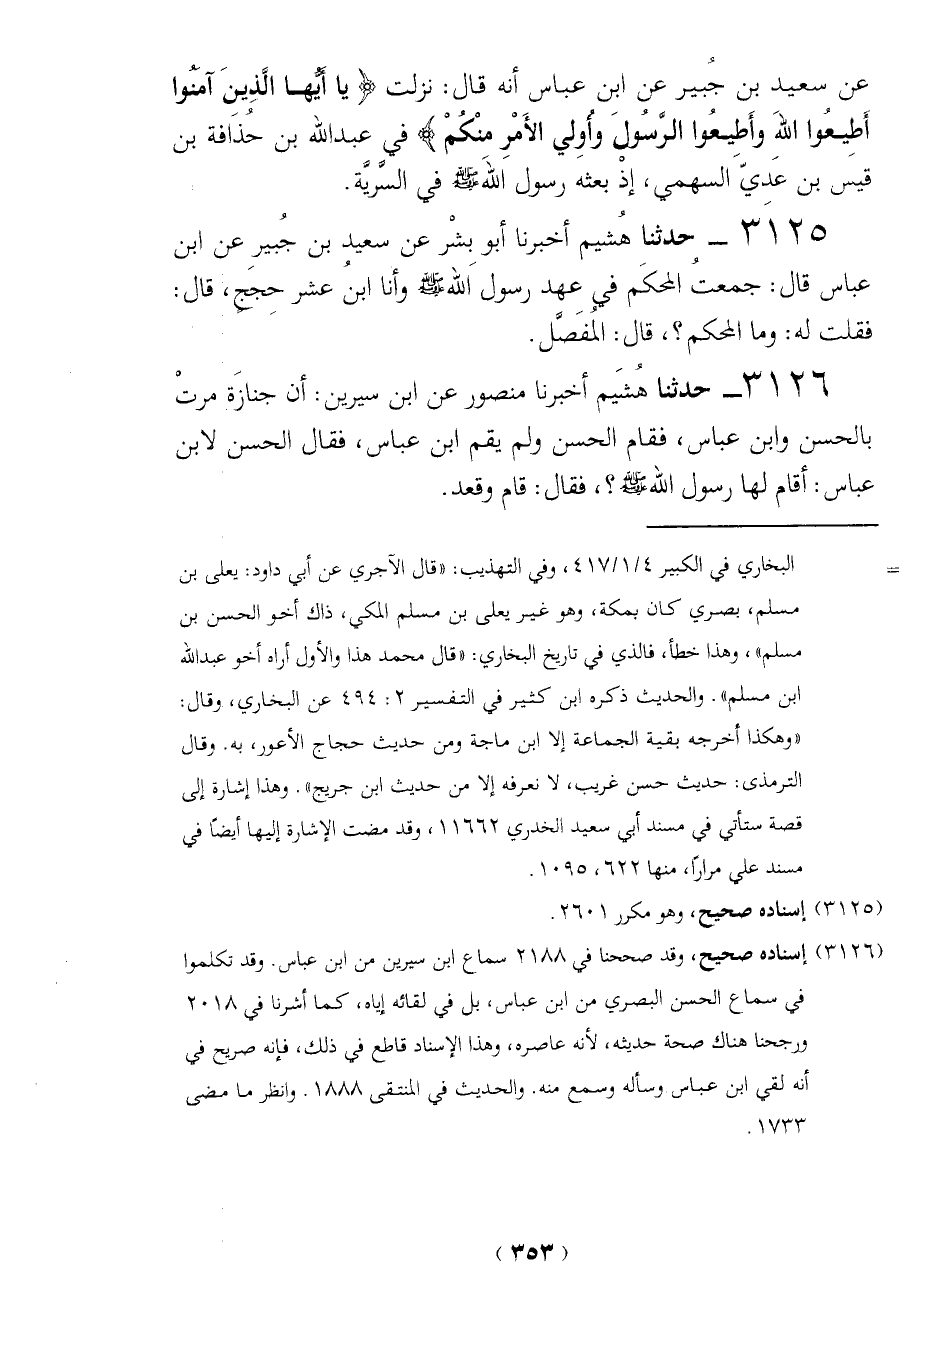 عن سعيد بن جُبير عن ابن عباس أنه قال: نزلت ﴿ يا أَيُّها الَّذِينَ آمَنُوا
أَطِيعُوا اللهَ وأَطِيعُوا الرَّسُولَ وأُولِي الأَمْرِ مِنْكُمْ ﴾ في عبدالله بن حُذَافة بن
قيس بن عَدِيّ السهمي، إذْ بعثه رسول اللهﷺ في السَّرِيَّة.
٣١٢٥ ــ حدثنا هُشيم أخبرنا أبو بشْر عن سعيد بن جُبير عن ابن
عباس قال: جمعتُ المحكَم في عهد رسول اللهﷺ وأنا ابنُ عشر حِجَج، قال:
فقلت له: وما المحكم؟، قال: المُفَصَّل.
٣١٢٦ــ حدثنا هُشَيم أخبرنا منصور عن ابن سيرين: أن جنازَة مرتْ
بالحسن وابن عباس، فقام الحسن ولم يقم ابن عباس، فقال الحسن لابن
عباس: أقام لها رسول اللهﷺ؟، فقال: قام وقعد.
= البخاري في الكبير ٤١٧/١/٤، وفي التهذيب: «قال الآجري عن أبي داود: يعلى بن
مسلم، بصري كان بمكة، وهو غير يعلى بن مسلم المكي، ذاك أخو الحسن بن
مسلم»، وهذا خطأ، فالذي في تاريخ البخاري: «قال محمد هذا والأول أراه أخو عبدالله
ابن مسلم». والحديث ذكره ابن كثير في التفسير ٢: ٤٩٤ عن البخاري، وقال:
«وهكذا أخرجه بقية الجماعة إلا ابن ماجة ومن حديث حجاج الأعور، به. وقال
الترمذى: حديث حسن غريب، لا نعرفه إلا من حديث ابن جريج». وهذا إشارة إلى
قصة ستأتي في مسند أبي سعيد الخدري ١١٦٦٢، وقد مضت الإشارة إليها أيضاً في
مسند علي مراراً، منها ٦٢٢، ١٠٩٥.
(٣١٢٥) إسناده صحيح، وهو مكرر ٢٦٠١.
(٣١٢٦) إسناده صحيح، وقد صححنا في ٢١٨٨ سماع ابن سيرين من ابن عباس. وقد تكلموا
في سماع الحسن البصري من ابن عباس، بل في لقائه إياه، كما أشرنا في ٢٠١٨
ورجحنا هناك صحة حديثه، لأنه عاصره، وهذا الإسناد قاطع في ذلك، فإنه صريح في
أنه لقي ابن عباس وسأله وسمع منه. والحديث في المنتقى ١٨٨٨. وانظر ما مضى
١٧٣٣.
( ٣٥٣ )